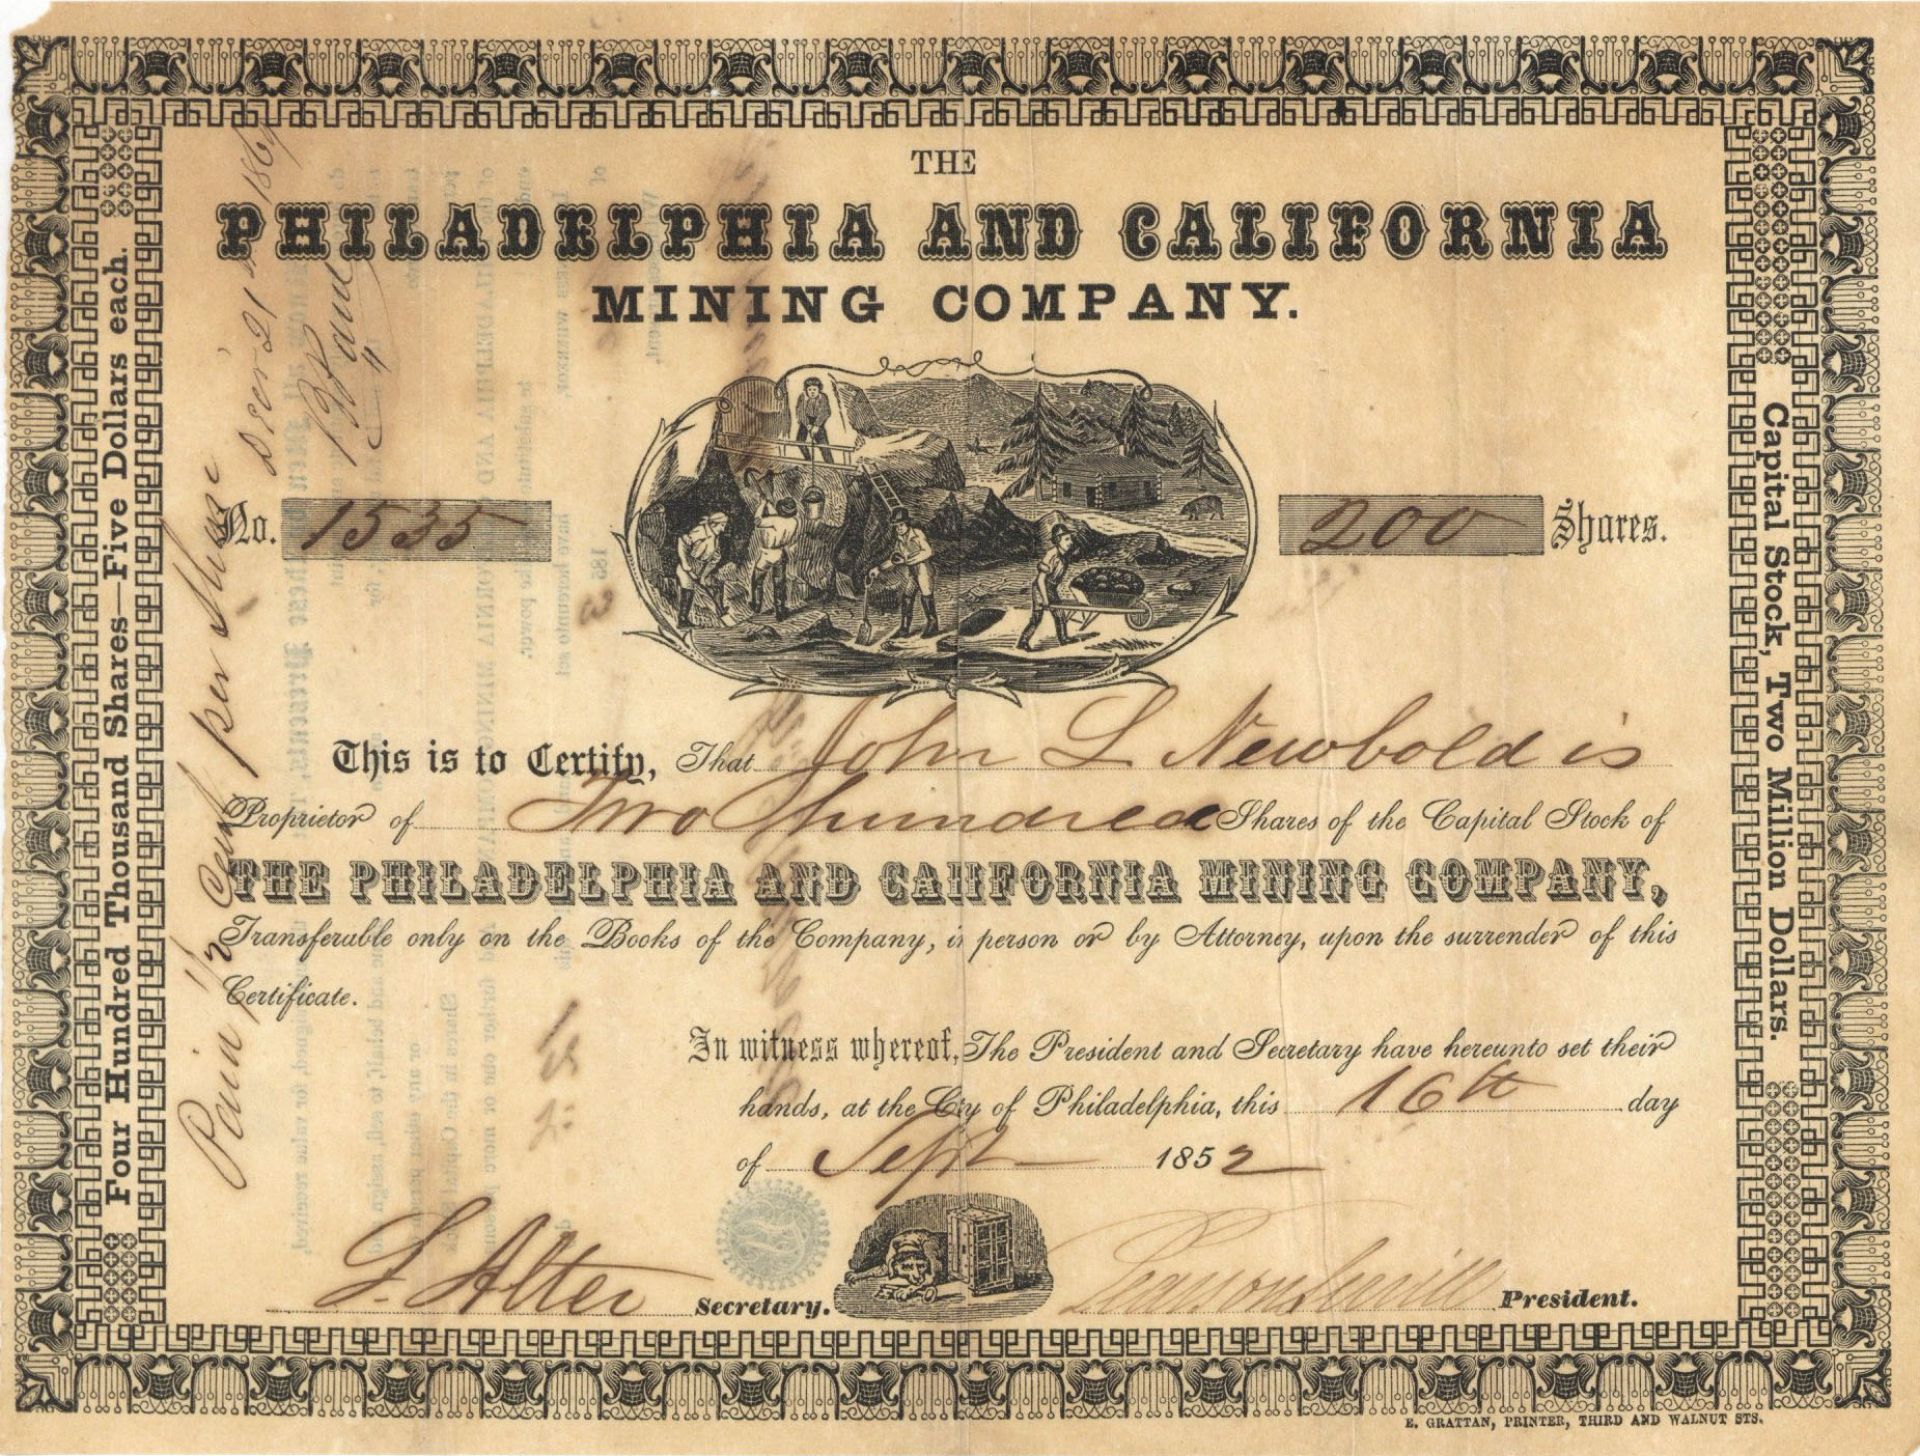 THE
PHILADELPHIA AND CALIFORNIA
MINING COMPANY.
No. 1535
200 Shares.
This is to Certify, That John L Newbold is
Proprietor of Two hundred Shares of the Capital Stock of
THE PHILADELPHIA AND CALIFORNIA MINING COMPANY,
Transferable only on the Books of the Company, in person or by Attorney, upon the surrender of this
Certificate.
In witness whereof, The President and Secretary have hereunto set their
hands, at the City of Philadelphia, this 16th day
of Sept 1852
J. Alter Secretary.
President.
Four Hundred Thousand Shares—Five Dollars each.
Capital Stock, Two Million Dollars.
Paid 1/2 Cent per Share
Decr 21
E. GRATTAN, PRINTER, THIRD AND WALNUT STS.